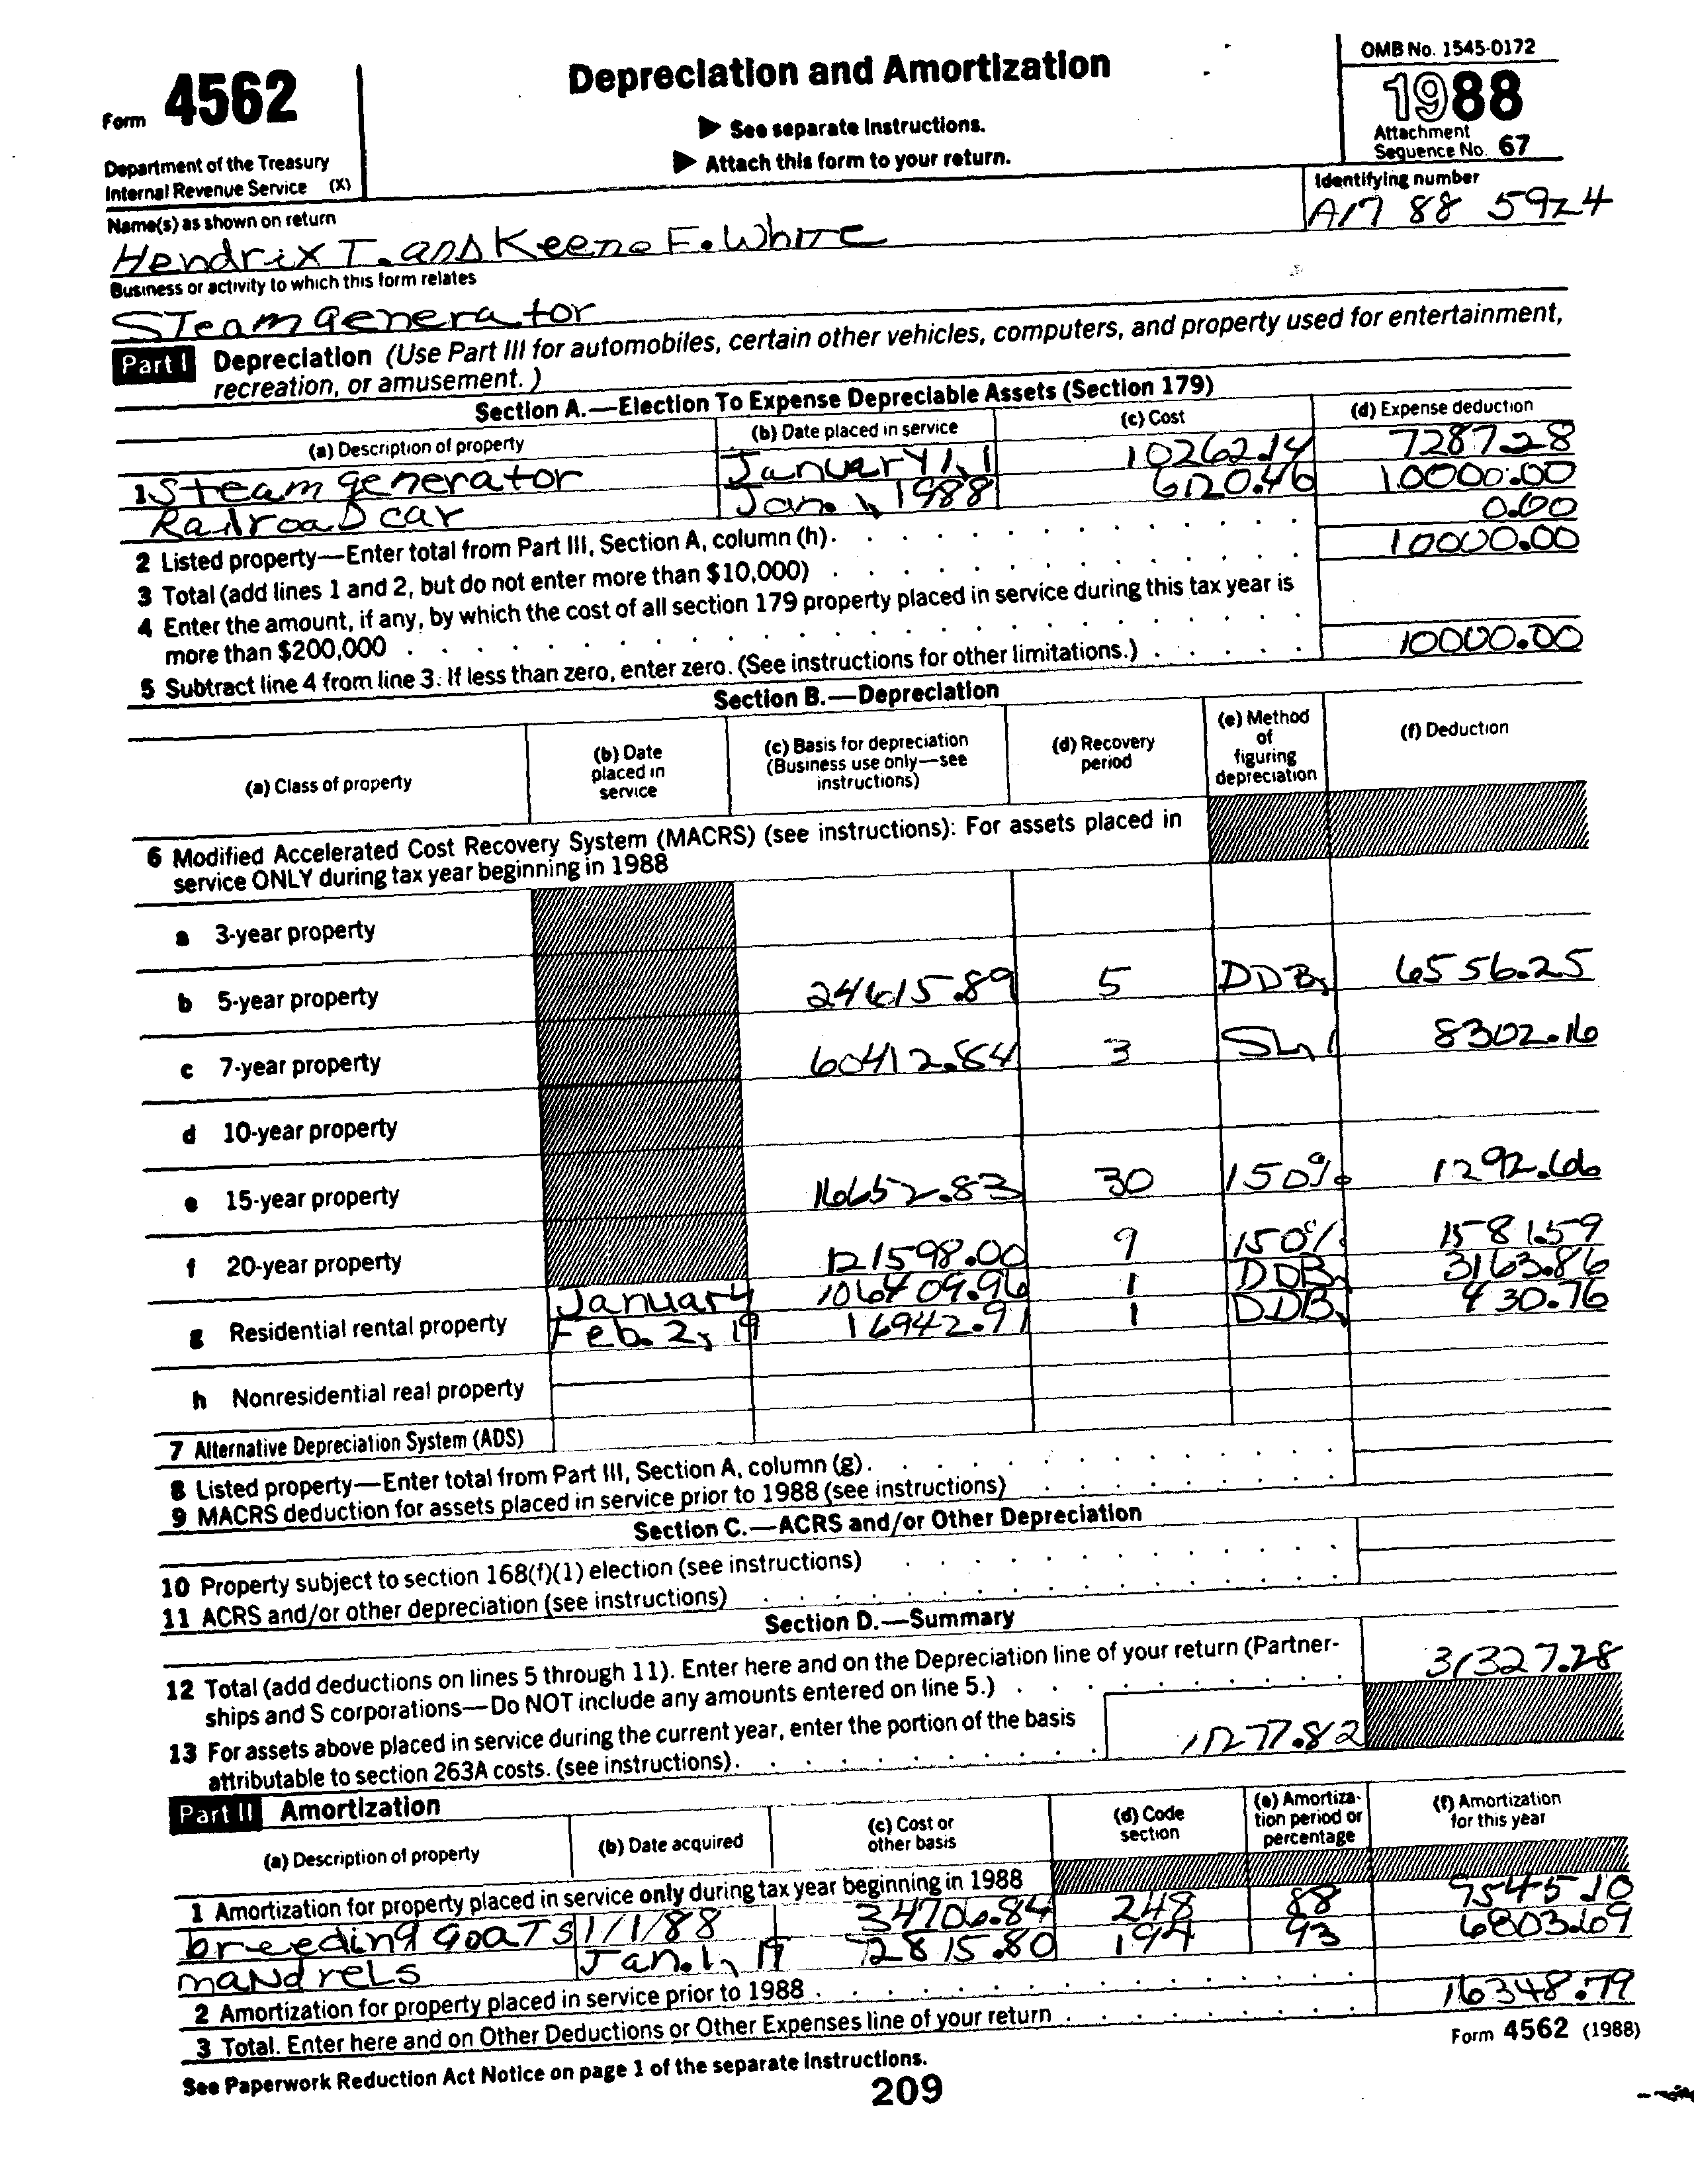 Form 4562
Department of the Treasury
Internal Revenue Service (X)
Depreciation and Amortization
▶ See separate Instructions.
▶ Attach this form to your return.
OMB No. 1545-0172
1988
Attachment
Sequence No. 67
Name(s) as shown on return
Hendrix T. and Keene F. White
Identifying number
A17 88 5924
Business or activity to which this form relates
Steam generator
Part I Depreciation (Use Part III for automobiles, certain other vehicles, computers, and property used for entertainment,
recreation, or amusement.)
Section A.—Election To Expense Depreciable Assets (Section 179)
(a) Description of property (b) Date placed in service (c) Cost (d) Expense deduction
1 Steam generator January 1, 1 10262.14 7287.28
Railroad car Jan. 1, 1988 6120.46 10000.00
2 Listed property—Enter total from Part III, Section A, column (h). 0.00
3 Total (add lines 1 and 2, but do not enter more than $10,000) 10000.00
4 Enter the amount, if any, by which the cost of all section 179 property placed in service during this tax year is
more than $200,000
5 Subtract line 4 from line 3. If less than zero, enter zero. (See instructions for other limitations.) 10000.00
Section B.—Depreciation
(a) Class of property (b) Date placed in service (c) Basis for depreciation (Business use only—see instructions) (d) Recovery period (e) Method of figuring depreciation (f) Deduction
6 Modified Accelerated Cost Recovery System (MACRS) (see instructions): For assets placed in
service ONLY during tax year beginning in 1988
a 3-year property
b 5-year property 24615.89 5 DDB, 6556.25
c 7-year property 60412.84 3 SL, 1 8302.16
d 10-year property
e 15-year property 16652.83 30 150% 1292.66
f 20-year property 121598.00 9 150% 1581.59
January 106409.96 1 DDB, 3163.86
g Residential rental property Feb. 2, 19 16942.91 1 DDB, 430.76
h Nonresidential real property
7 Alternative Depreciation System (ADS)
8 Listed property—Enter total from Part III, Section A, column (g).
9 MACRS deduction for assets placed in service prior to 1988 (see instructions)
Section C.—ACRS and/or Other Depreciation
10 Property subject to section 168(f)(1) election (see instructions)
11 ACRS and/or other depreciation (see instructions)
Section D.—Summary
12 Total (add deductions on lines 5 through 11). Enter here and on the Depreciation line of your return (Partner-
ships and S corporations—Do NOT include any amounts entered on line 5.) 31327.28
13 For assets above placed in service during the current year, enter the portion of the basis
attributable to section 263A costs. (see instructions). 11277.82
Part II Amortization
(a) Description of property (b) Date acquired (c) Cost or other basis (d) Code section (e) Amortization period or percentage (f) Amortization for this year
1 Amortization for property placed in service only during tax year beginning in 1988
breeding goats 1/1/88 34706.84 248 88 9545.10
mandrels Jan. 1, 19 72815.80 194 93 6803.69
2 Amortization for property placed in service prior to 1988
3 Total. Enter here and on Other Deductions or Other Expenses line of your return 16348.79
See Paperwork Reduction Act Notice on page 1 of the separate Instructions.
Form 4562 (1988)
209